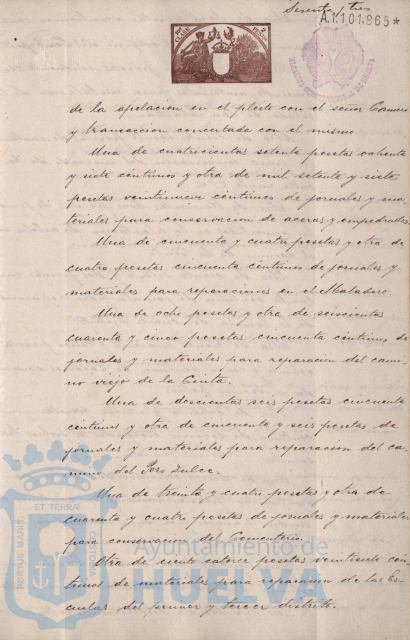 Sesenta y tres
A.1.101.865*
de la apelacion en el pleito con el señor Cormero
y transaccion concertada con el mismo.
Una de cuatrocientas setenta pesetas ochenta
y siete céntimos y otra de mil setenta y siete
pesetas veintinueve céntimos de jornales y ma-
teriales para conservacion de aceras y empedrados.
Una de cincuenta y cuatro pesetas y otra de
cuatro pesetas cincuenta céntimos de jornales y
materiales para reparaciones en el Matadero.
Una de ocho pesetas y otra de seiscientas
cuarenta y cinco pesetas cincuenta céntimos de
jornales y materiales para reparacion del cami-
no viejo de la Cinta.
Una de doscientas seis pesetas cincuenta
céntimos y otra de cincuenta y seis pesetas de
jornales y materiales para reparacion del ca-
mino del Poso Dulce.
Una de treinta y cuatro pesetas y otra de
cuarenta y cuatro pesetas de jornales y materiales
para conservacion del Cementerio.
Otra de ciento catorce pesetas veintisiete cén-
timos de materiales para reparacion de las Es-
cuelas del primer y tercer distrito.
PORTUS MARIS
ET TERRÆ
CUSTODIA
Ayuntamiento de
HUELVA